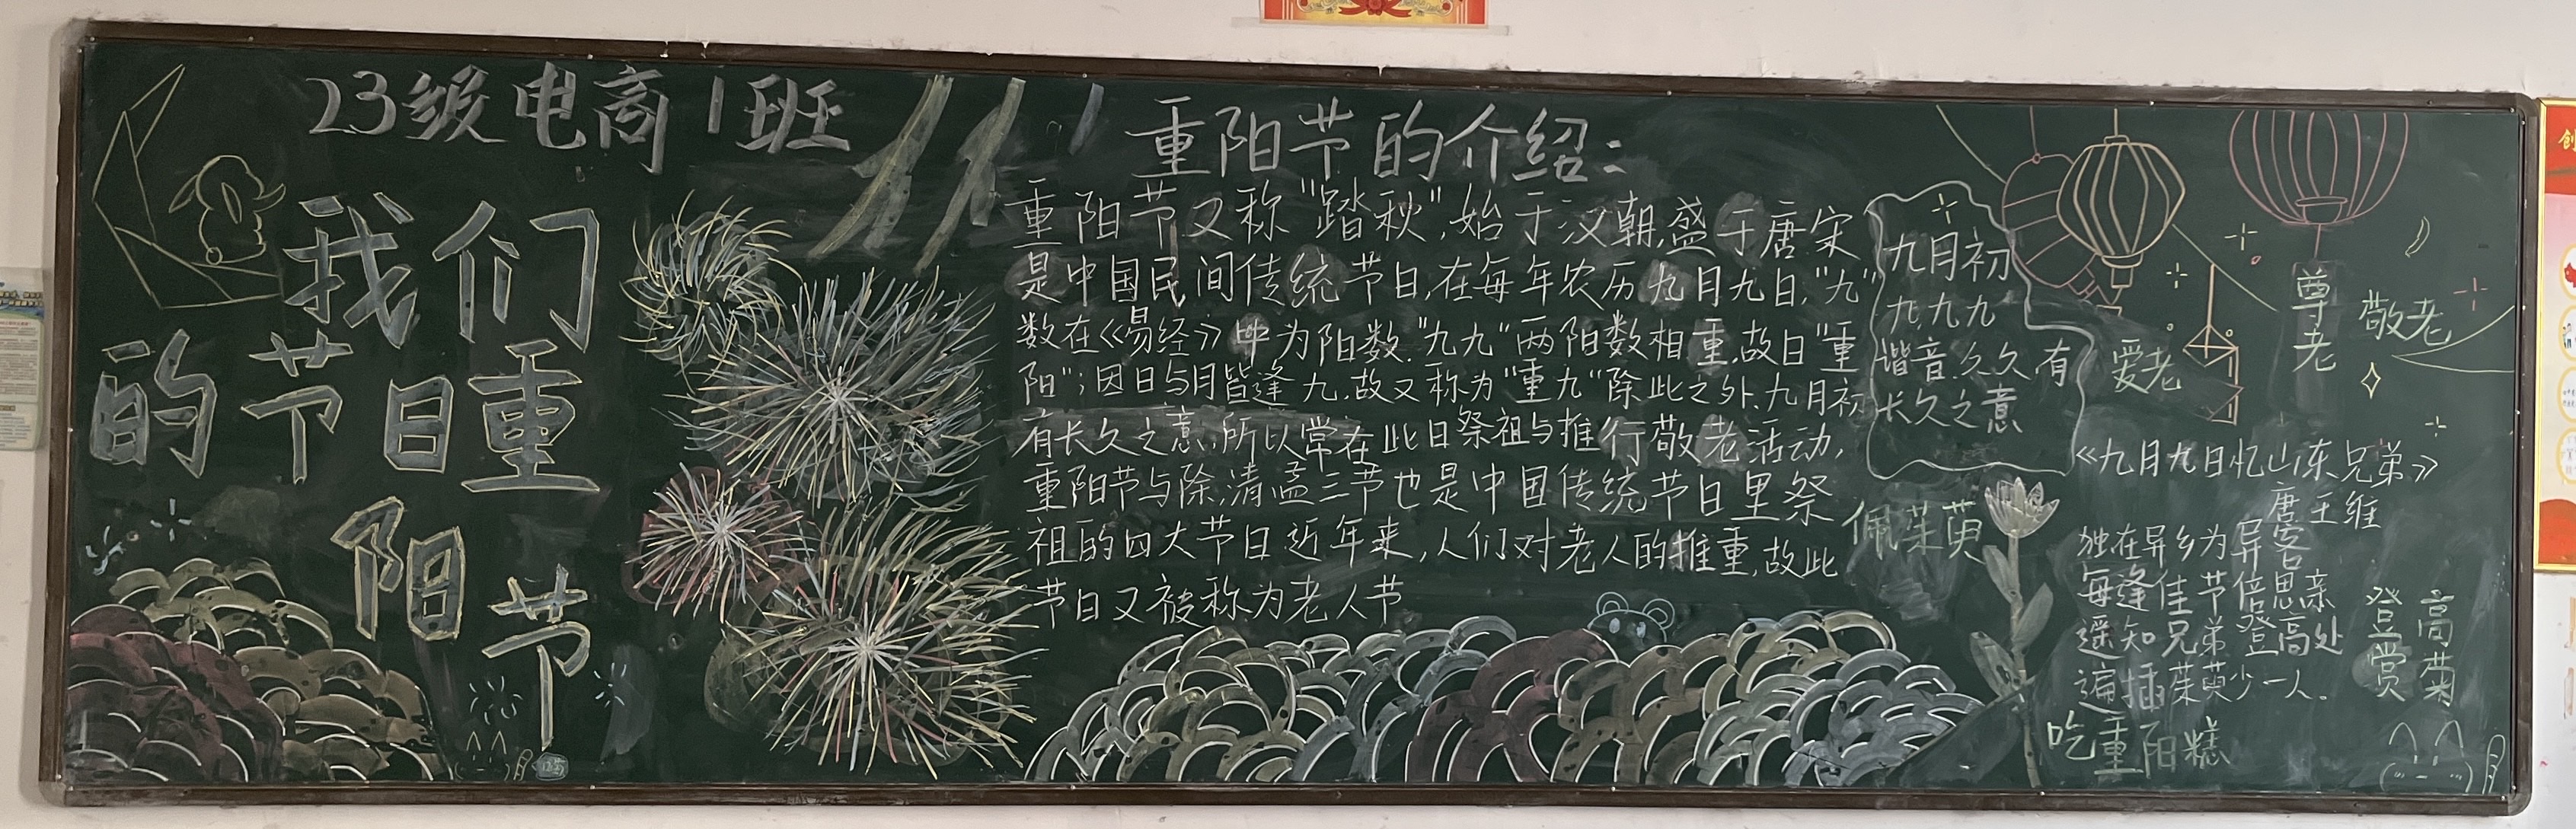 23级电商1班
我们
的节日重
阳
节
重阳节的介绍:
重阳节又称"踏秋",始于汉朝,盛于唐宋
是中国民间传统节日,在每年农历九月九日,"九"
数在《易经》中为阳数."九九"两阳数相重,故日"重
阳";因日与月皆逢九,故又称为"重九"除此之外,九月初
有长久之意,所以常在此日祭祖与推行敬老活动,
重阳节与除,清,孟三节也是中国传统节日里祭
祖的四大节日近年来,人们对老人的推重,故此
节日又被称为老人节
九月初
九,九九
谐音久久有
长久之意
佩茱萸
爱老
尊老
敬老
《九月九日忆山东兄弟》
唐王维
独在异乡为异客
每逢佳节倍思亲
遥知兄弟登高处
遍插茱萸少一人。
登高
赏菊
吃重阳糕